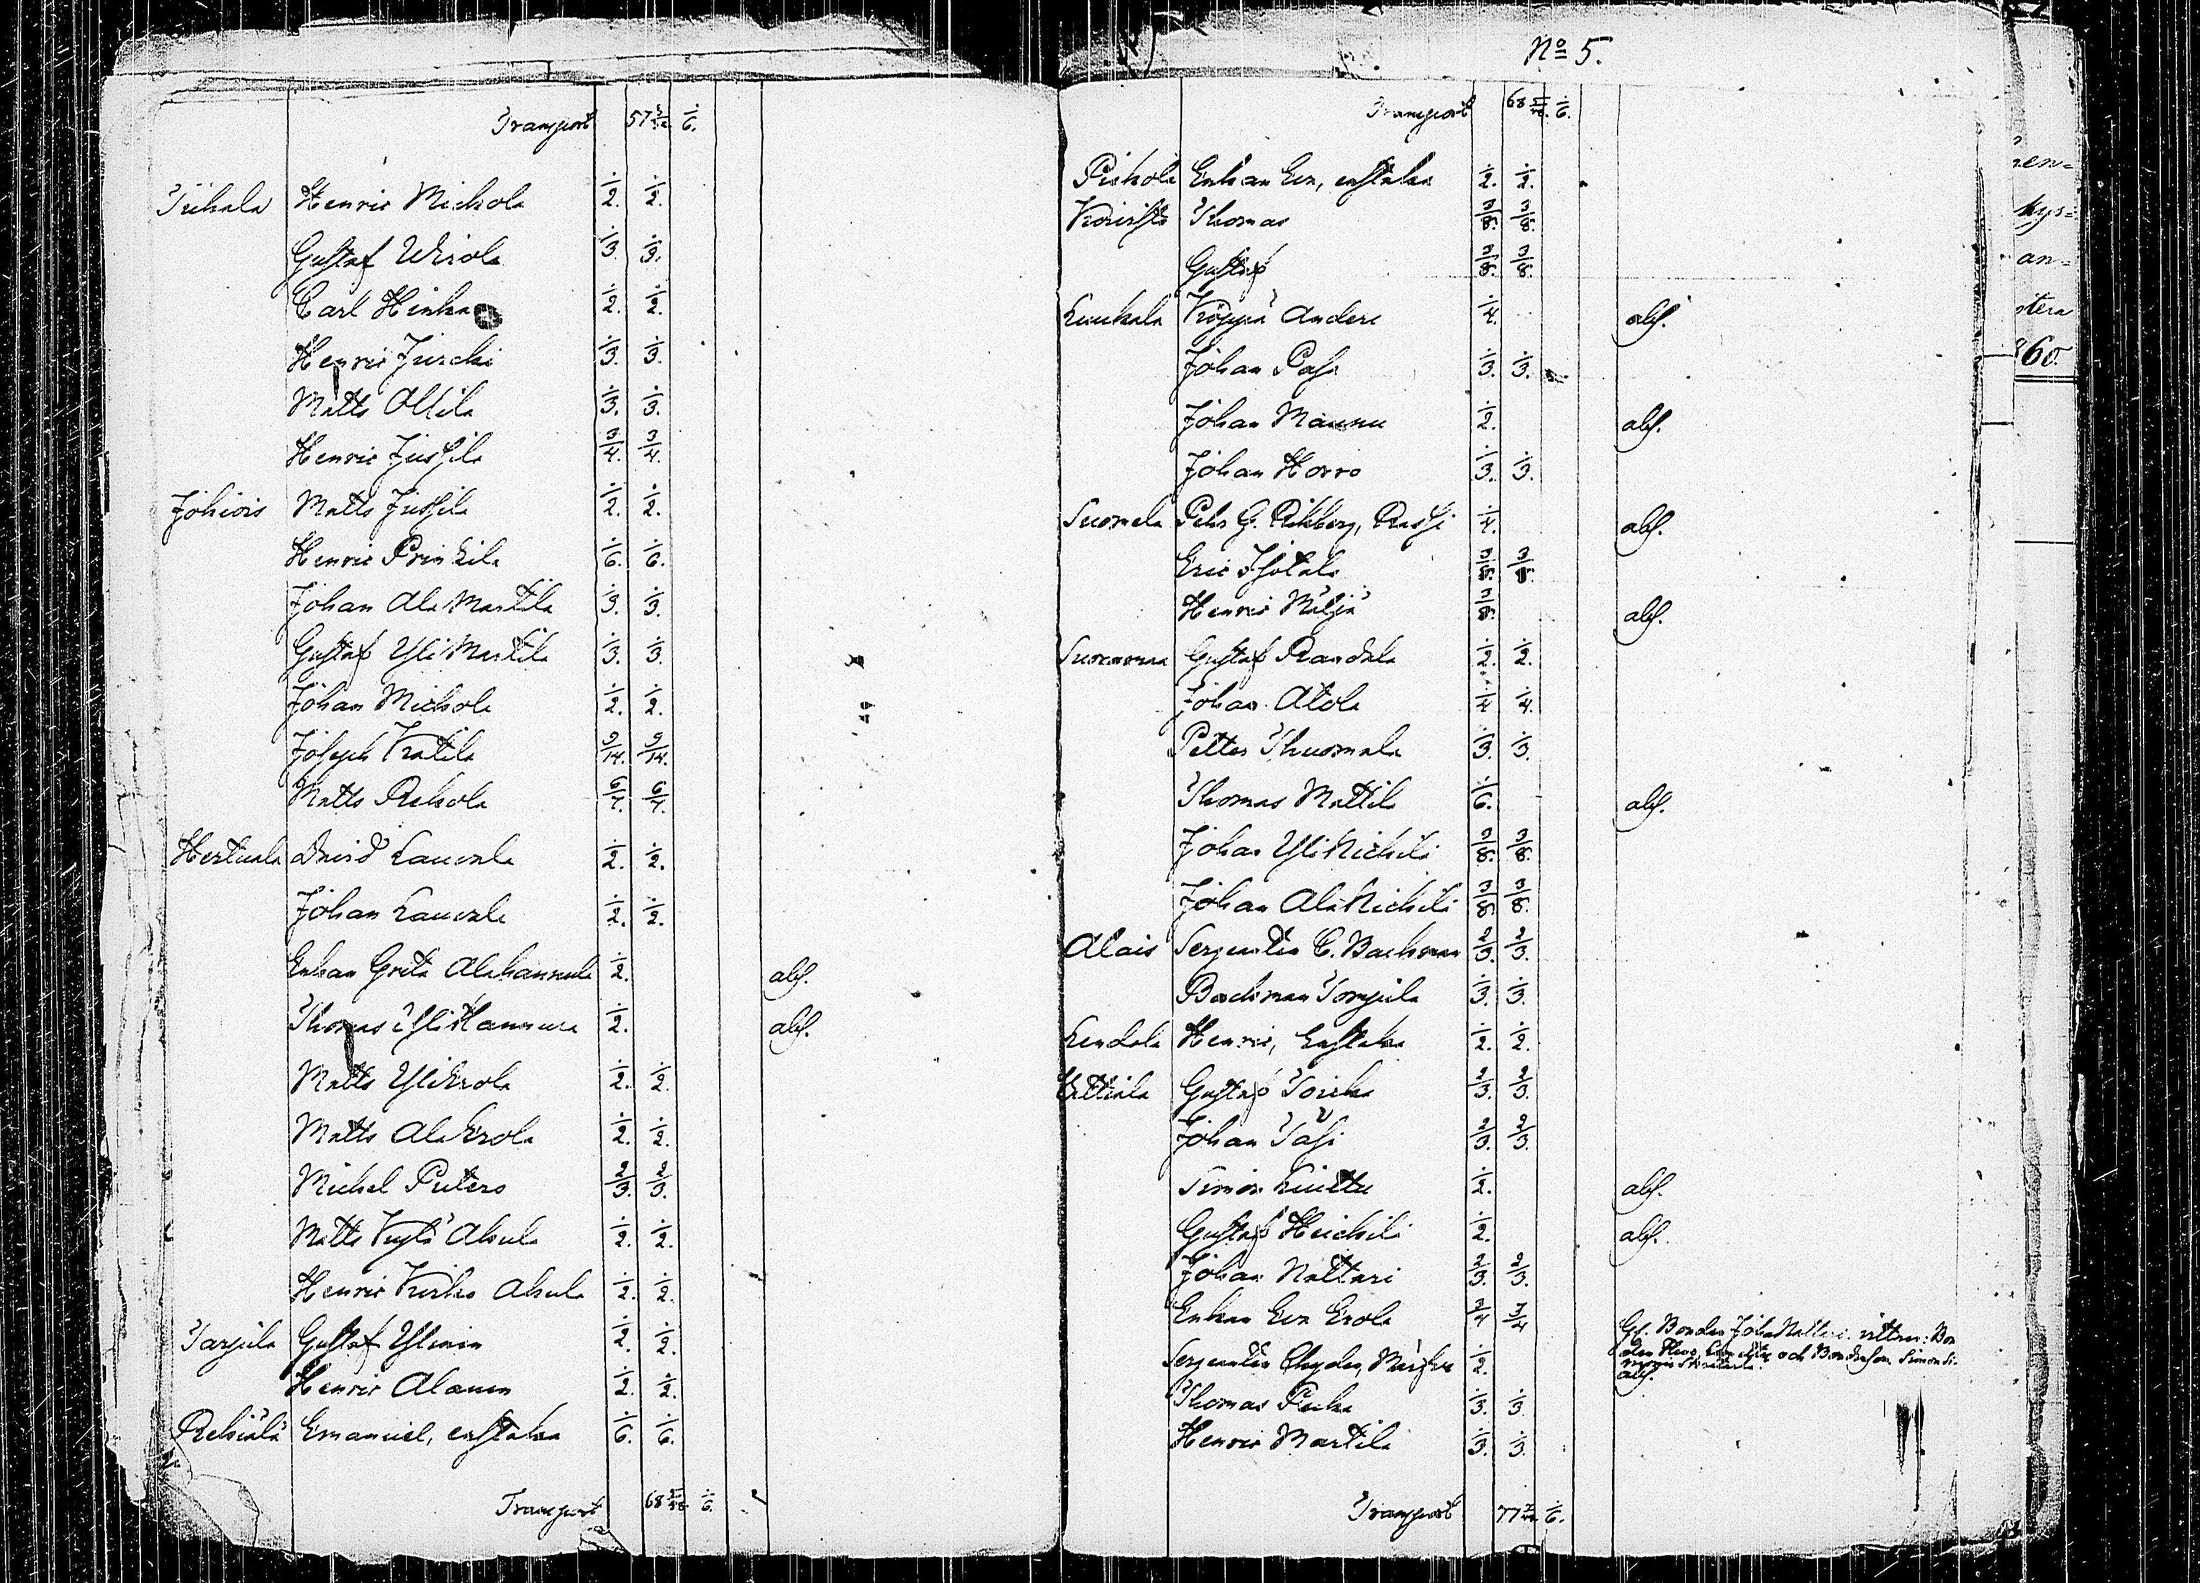 Transport 57 1/6.
Tuhala Henric Michola 1/2. 1/2.
Gustaf Wirola 1/3. 1/3.
Carl Hinka 1/2. 1/2.
Henric Jurcki 1/3. 1/3.
Matts Ollila 1/3. 1/3.
Henric Jussila 3/4. 3/4.
Johiois Matts Jussila 1/2. 1/2.
Henric Prinkilä 1/6. 1/6.
Johan Ala Martila 1/3. 1/3.
Gustaf Yli Martila 1/3. 1/3.
Johan Michola 1/2. 1/2.
Joseph Kratila 9/14. 9/14.
Matts Rekola 6/7. 6/7.
Hertuala David Laurala 1/2. 1/2.
Johan Laurala 1/2. 1/2.
Enkan Greta Alehannula 1/2. abs.
Thomas Yli Hannula 1/2. abs.
Matts Yli Erola 1/2. 1/2.
Matts Ala Erola 1/2. 1/2.
Michel Puters 2/3. 2/3.
Matts Kylä Akula 1/2. 1/2.
Henric Kirko Akula 1/2. 1/2.
Tarjula Gustaf Ylinen 1/2. 1/2.
Henric Alanen 1/2. 1/2.
Rekiälä Emanuel, enstaka 1/6. 1/6.
Transport 68 1/6.
No 5.
Transport 68 1/6.
Pickola Enkan Eva, enstaka 1/2. 1/2.
Koivisto Thomas 3/8. 3/8.
Gustaf 3/8. 3/8.
Luukala Kröppä Anders 1/4. abs.
Johan Pass 1/3. 1/3.
Johan Mannu 1/2. abs.
Johan Horro 1/3. 1/3.
Suomela Pehr G. Rikberg, Rassi 1/4. abs.
Eric Isotalo 3/8. 3/8.
Henric Mäljä 3/8. abs.
Summaa Gustaf Randala 1/2. 1/2.
Johan Atola 1/4 1/4.
Petter Thuomala 1/3. 1/3.
Thomas Mattila 1/6. abs.
Johan Yli Nichilä 3/8. 3/8.
Johan Ala Nichilä 3/8 3/8.
Alais Sergeanten C. Backman 2/3. 2/3.
Backman Torjula 1/3. 1/3.
Lendala Henric, Enstaka 1/2. 1/2.
Kattiala Gustaf Toicka 2/3. 2/3.
Johan Tassi 2/3. 2/3.
Simon Luuttu 1/2. abs.
Gustaf Heickilä 1/2. abs.
Johan Nattari 2/3. 2/3.
Enkan Eva Erola 3/4 3/4
Gl. Bonden Johan Nattari. vittnen: Bon
den och Bondeson Simon
Sergeanten 1/2. abs.
Thomas Pecka 1/3. 1/3.
Henric Martila 1/3. 1/3.
Transport 77 1/6.
nen=
kys=
an=
stera
860.